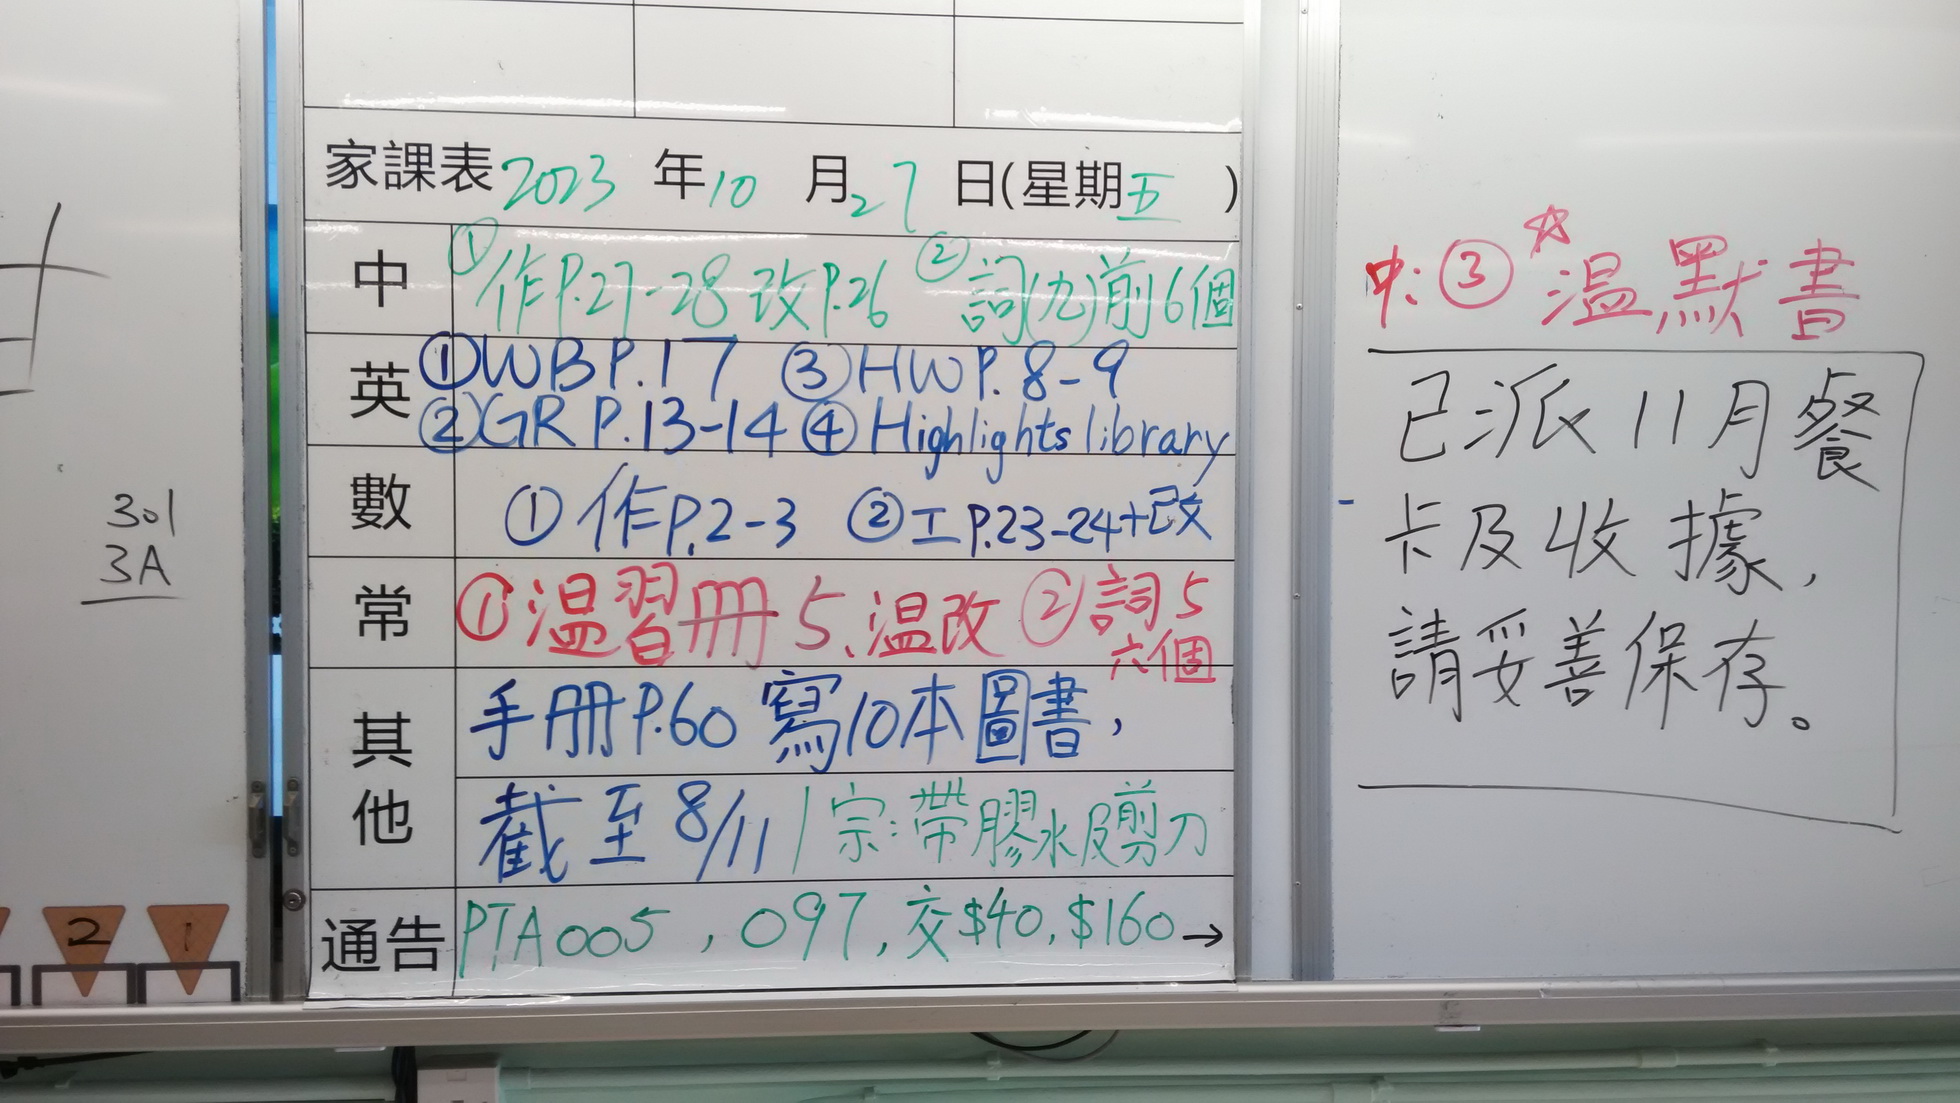 家課表 2023 年 10 月 27 日(星期五)
中 ① 作P.27-28 改P.26 ② 詞(九)前6個
英 ① WB P.17 ③ HW P.8-9
② GR P.13-14 ④ Highlights library
數 ① 作P.2-3 ② 工P.23-24+改
常 ① 溫習冊 5、溫改 ② 詞5
六個
其他 手册P.60 寫10本圖書,
截至8/11 / 宗:帶膠水及剪刀
通告 PTA005, 097, 交$40, $160→
中: ③ ☆溫默書
已派11月餐
卡及收據,
請妥善保存。
301
3A
2
1